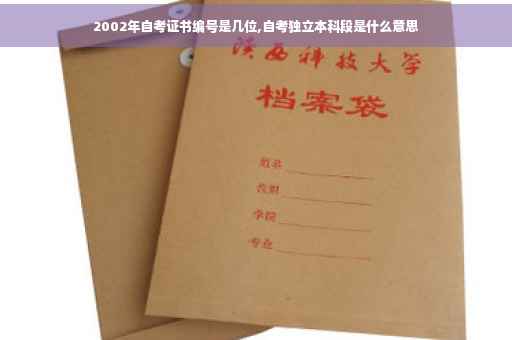 2002年自考证书编号是几位,自考独立本科段是什么意思
陕西科技大学
档案袋
姓名
班级
学院
专业